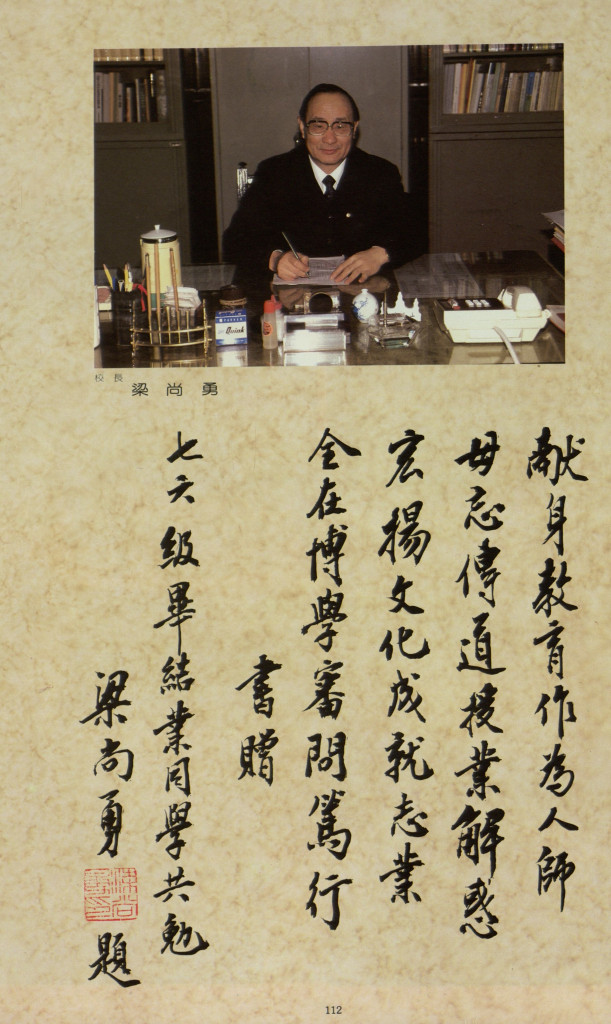 Quink
校長
梁尚勇
献身教育作為人師
毋忘傳道授業解惑
宏揚文化成就志業
全在博學審問篤行
書贈
七六級畢結業同學共勉
梁尚勇
題
112